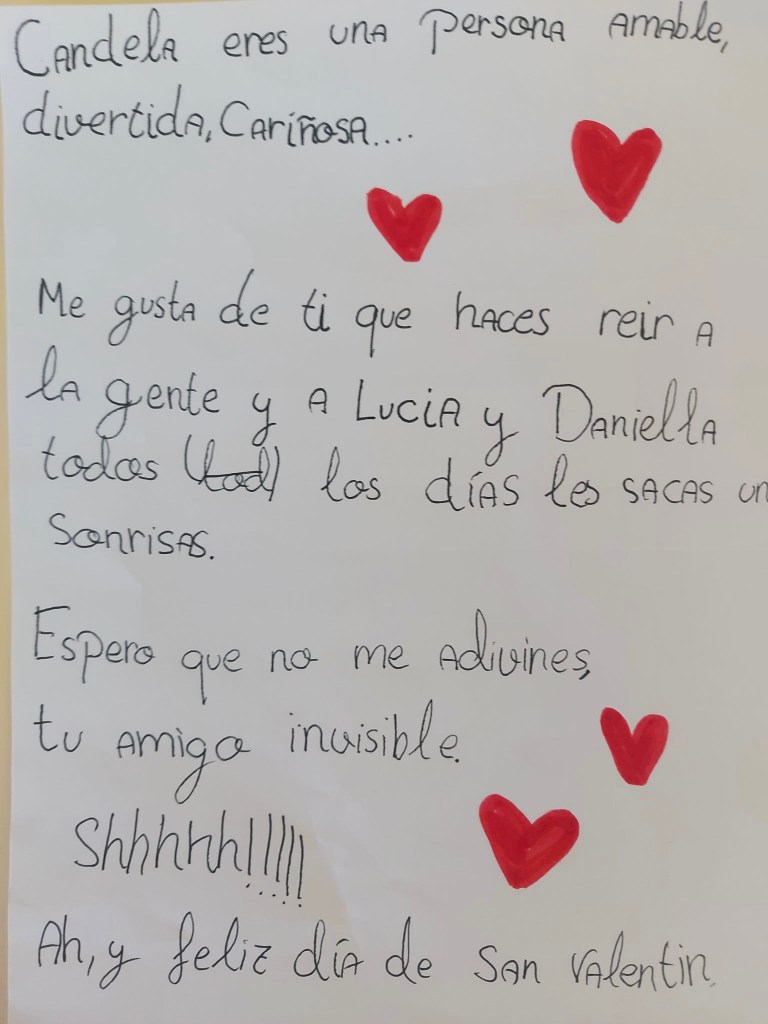 Candela eres una persona amable,
divertida, Cariñosa....
Me gusta de ti que haces reir a
la gente y a Lucia y Daniella
todos (tod) los días les sacas un
Sonrisas.
Espero que no me adivines,
tu amigo invisible.
Shhhhh!!!!!
Ah, y feliz día de San Valentin.